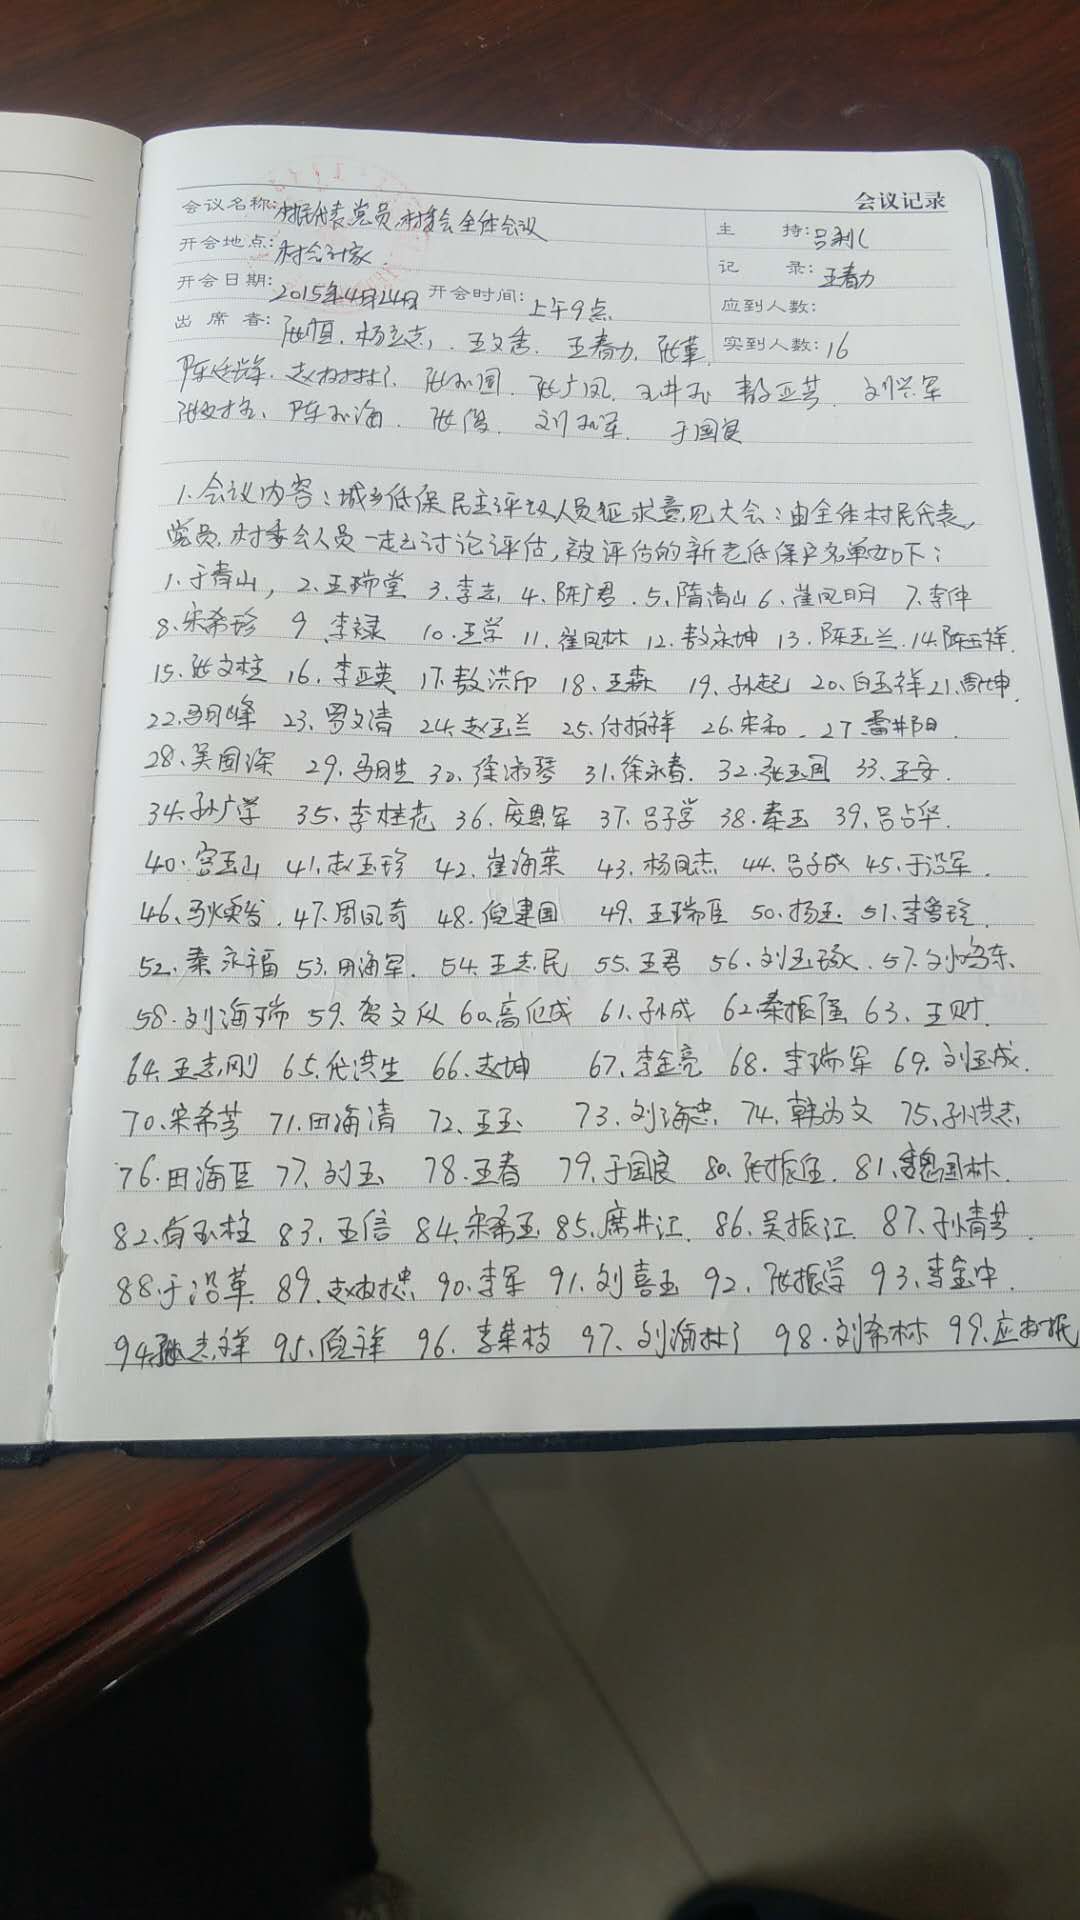 会议记录
会议名称: 村民代表党员,村委会全体会议
主 持: 吕利
开会地点: 村会计家
记 录: 王春力
开会日期: 2015年4月24日 开会时间: 上午9点
应到人数:
出席者: 张恒. 杨立志, 王文秀. 王春力, 张革
实到人数: 16
陈廷辉. 张永国. 张广凤. 敖亚芳 刘兴军
陈永海. 张俊. 刘永军. 于国良
1.会议内容:城乡低保民主评议人员征求意见大会:由全体村民代表,
党员,村委会人员一起讨论评估,被评估的新老低保户名单如下:
1.于青山, 2.王瑞堂 3.李志 4.陈广君. 5.隋清山 6.崔凤明 7.李伟
8.宋希珍 9.李禄 10.王学 11.崔凤林 12.敖永坤 13.陈玉兰. 14.陈玉祥.
15.张文柱 16.李亚英 17.敖洪印 18.王森 19.孙起 20.白玉祥 21.周坤.
22.马明峰 23.罗文清 24.赵玉兰 25.付柏祥 26.宋和. 27.
28.吴国深 29.马明生 30.徐淑琴 31.徐永春. 32.张玉国 33.王安.
34.孙广学 35.李桂花 36.庞恩军 37.吕子学 38.秦玉 39.吕占华.
40.宫玉山 41.赵玉珍 42.崔海荣 43.杨凤杰 44.吕子成 45.于沿军.
46. 47.周凤奇 48.倪建国 49.王瑞臣 50.杨玉. 51.李鲁珍
52.秦永福 53.田海军. 54.王志民 55.王君 56.刘玉琢. 57.刘鸣东.
58.刘海瑞 59.贺文 60.高 成 61.孙成 62.秦振强 63.王财.
64.王志刚 65.代洪生 66.赵坤 67.李金亮 68.李瑞军 69.刘玉成.
70.宋希芳 71.田海清 72.王玉 73.刘海忠. 74.韩为文 75.孙洪志.
76.田海臣 77.刘玉 78.王春 79.于国良 80.张振 81.魏国林.
82.白玉柱 83.王信 84.宋希玉. 85.席井江. 86.吴振江. 87.孙清芳.
88.于沿革. 89.赵树忠 90.李军 91.刘喜玉 92.张振学 93.李金中.
94.张志祥 95.倪祥 96.李荣枝 97.刘海 98.刘希林 99.应